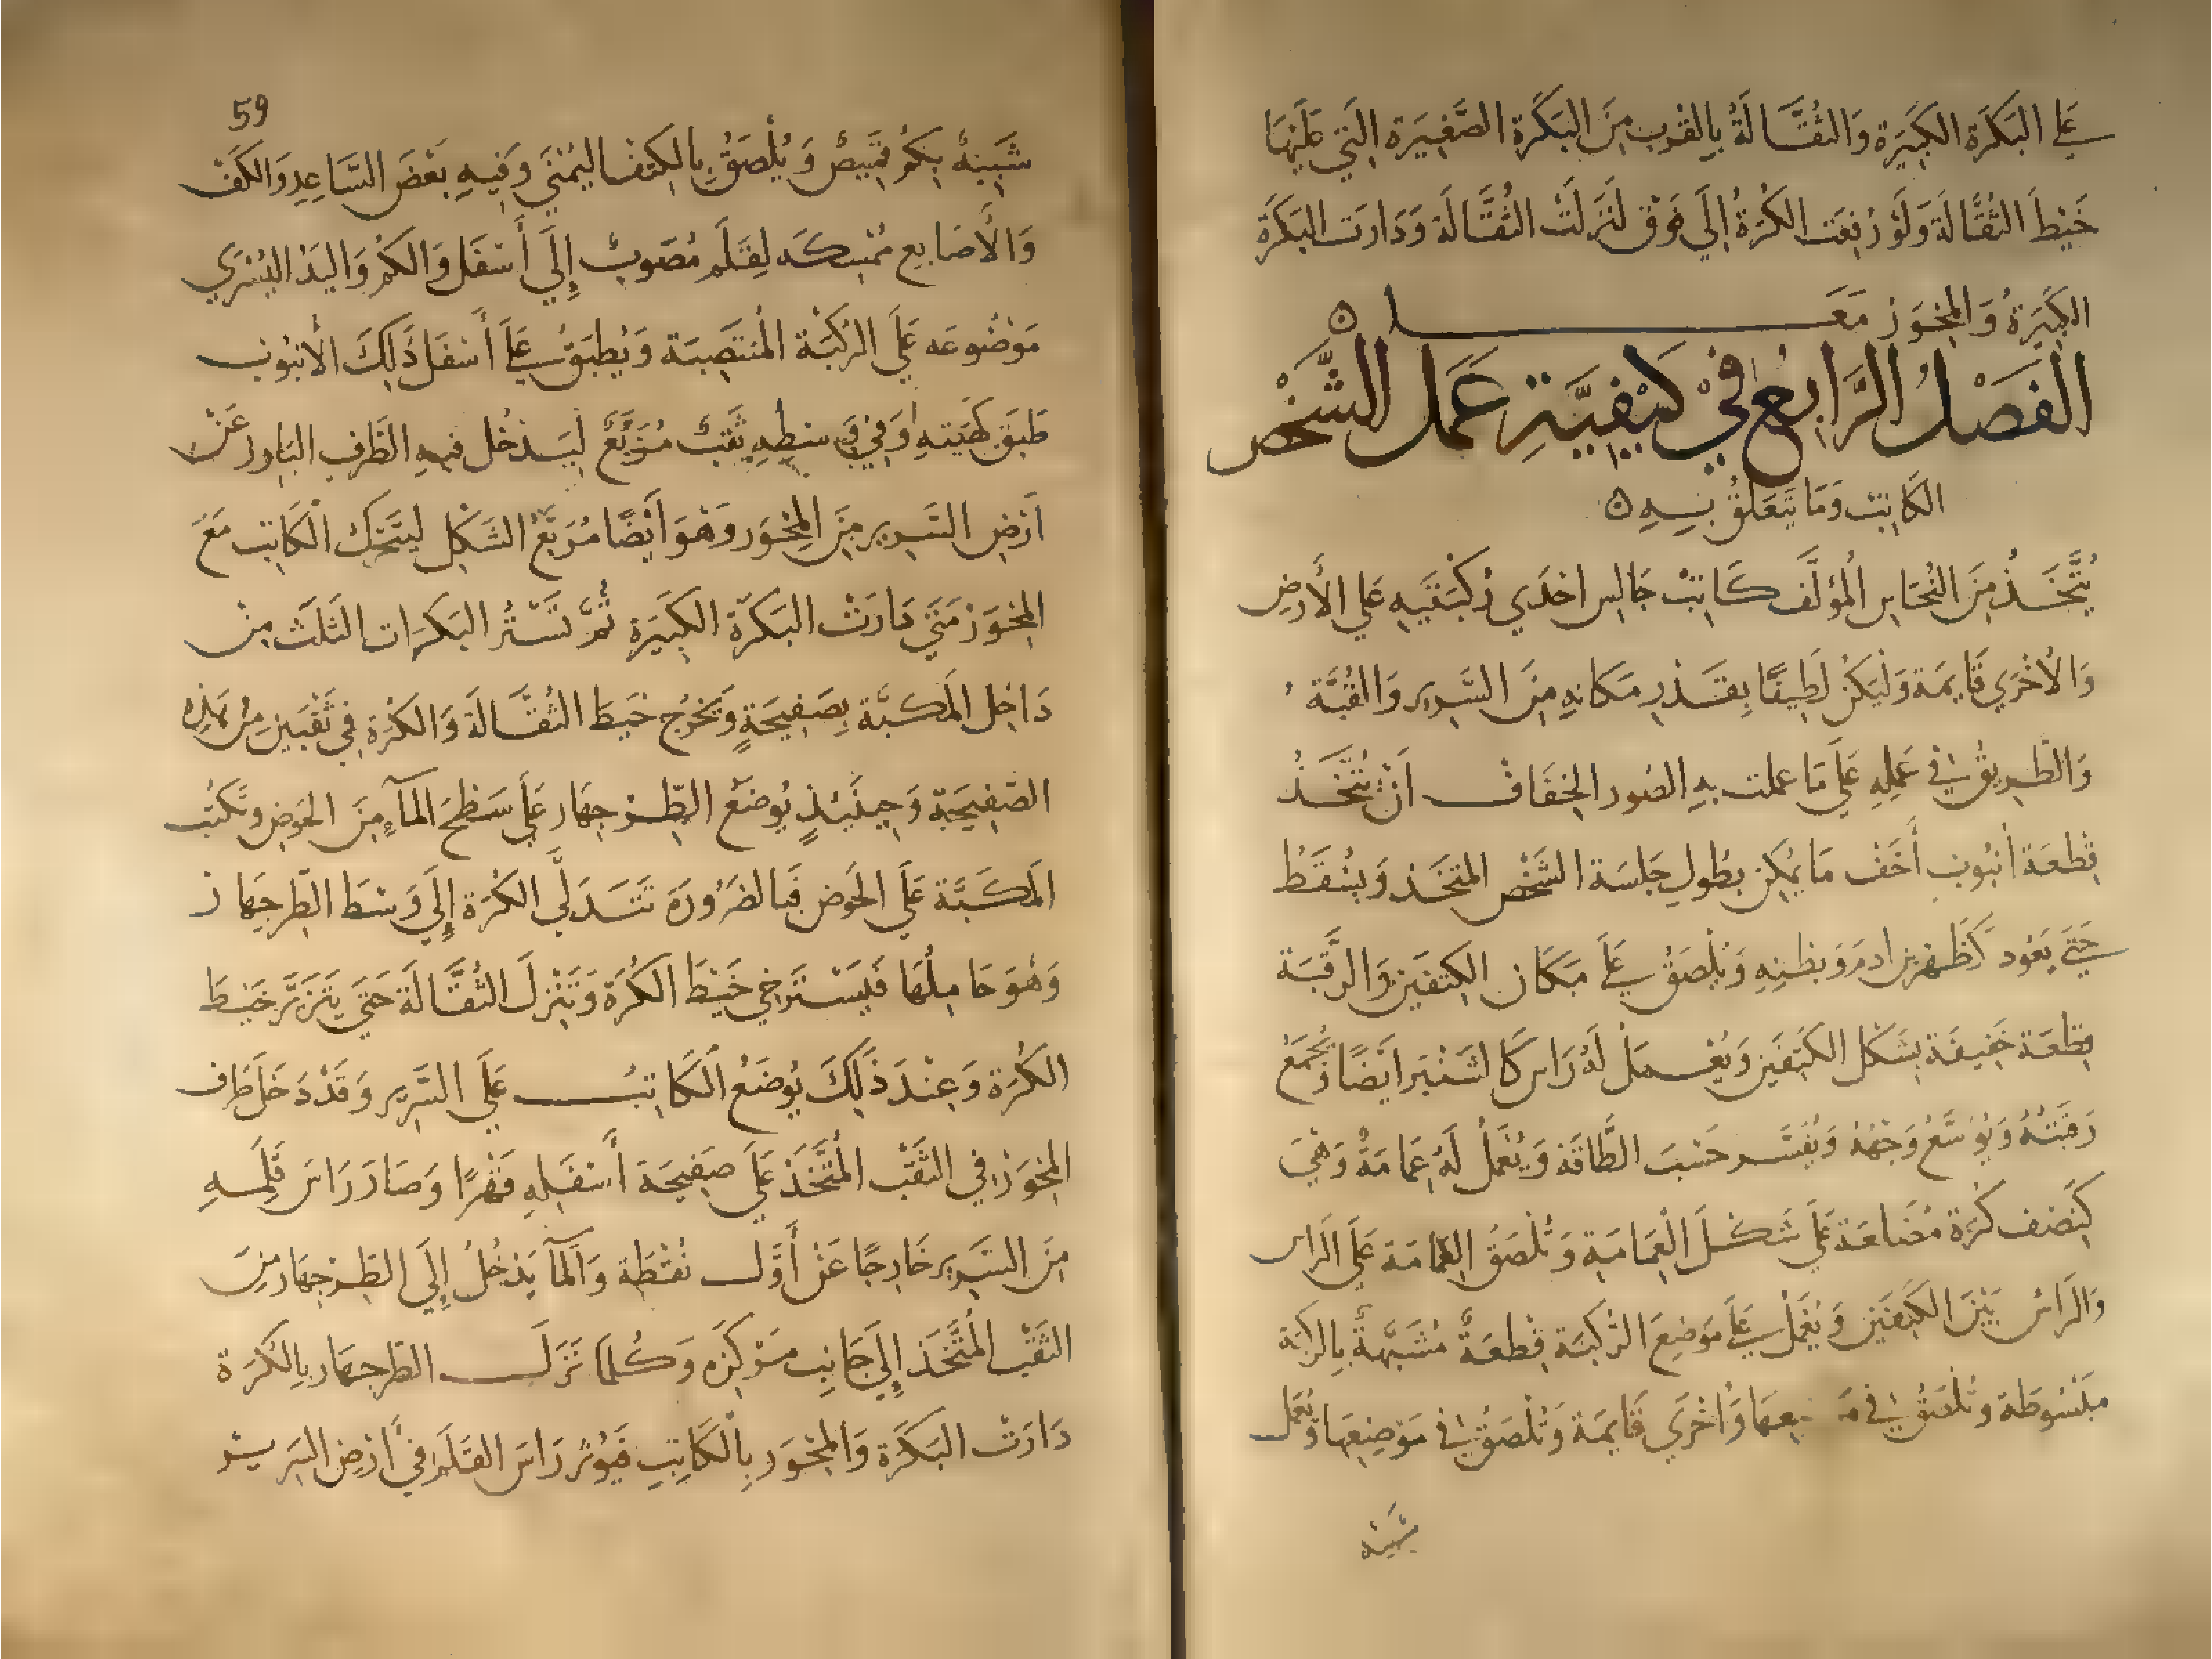 على البكرة الكبيرة والثقالة بالقرب من البكرة الصغيرة التي عليها
خيط الثقالة ولو رفعت الكرة إلى فوق لنزلت الثقالة ودارت البكرة
الكبيرة والمحور معا ه
الفصل الرابع في كيفية عمل الشخص
الكاتب وما يتعلق به ه
يتخذ من النحاس المؤلف كاتب جالس احدى ركبتيه على الأرض
والأخرى قايمة وليكن لطيفا بقدر مكانه من السرير والقبة
والطريق في عمله على ما عملت به الصور الخفاف أن يتخذ
قطعة انبوب أخف ما يمكن بطول جلسة الشخص المتخذ ويسقط
حتى يعود كظهر ابن ادم وبطنه ويلصق على مكان الكتفين والرقبة
قطعة خفيفة بشكل الكتفين ويعمل له راس كالشنبر ايضا تجمع
رقبته ويوسع وجهه ويفسر حسب الطاقة ويعمل له عمامة وهي
كنصف كرة مضاعة على شكل العمامة وتلصق العمامة على الراس
والراس بين الكتفين ويعمل على موضع الركبة قطعة مشبهة بالركبة
مبسوطة وتلصق في موضعها وأخرى قايمة وتلصق في موضعها ويعمل
شبيه
59
شبيه بكم قميص ويلصق بالكتف اليمنى وفيه بعض الساعد والكف
والأصابع ممسكه لقلم مصوب إلى أسفل والكم واليد اليسرى
موضوعه على الركبة المنتصبة ويطبق على أسفل ذلك الانبوب
طبق كهيته وفي وسطه ثقب مربع ليدخل فيه الطرف البارز عن
ارض السرير من المحور وهو أيضا مربع الشكل ليتحرك الكاتب مع
المحور متى دارت البكرة الكبيرة ثم تستر البكرات الثلث من
داخل المكبة بصفيحة ويخرج خيط الثقالة والكرة في ثقبين من هذه
الصفيحة وحينئذ يوضع الطرجهار على سطح الماء من الحوض وتكب
المكبة على الحوض فبالضرورة تتدلى الكرة إلى وسط الطرجهار
وهو حاملها فيسترخي خيط الكرة وتنزل الثقالة حتى يتزير خيط
الكرة وعند ذلك يوضع الكاتب على السرير وقد دخل طرف
المحور في الثقب المتخذ على صفيحة أسفله قهرا وصار راس قلمه
من السرير خارجا عن أول نقطة والمآ يدخل إلى الطرجهار من
الثقب المتخذ إلى جانب مركزه وكلما نزل الطرجهار بالكرة
دارت البكرة والمحور بالكاتب فيوثر راس القلم في أرض السرير